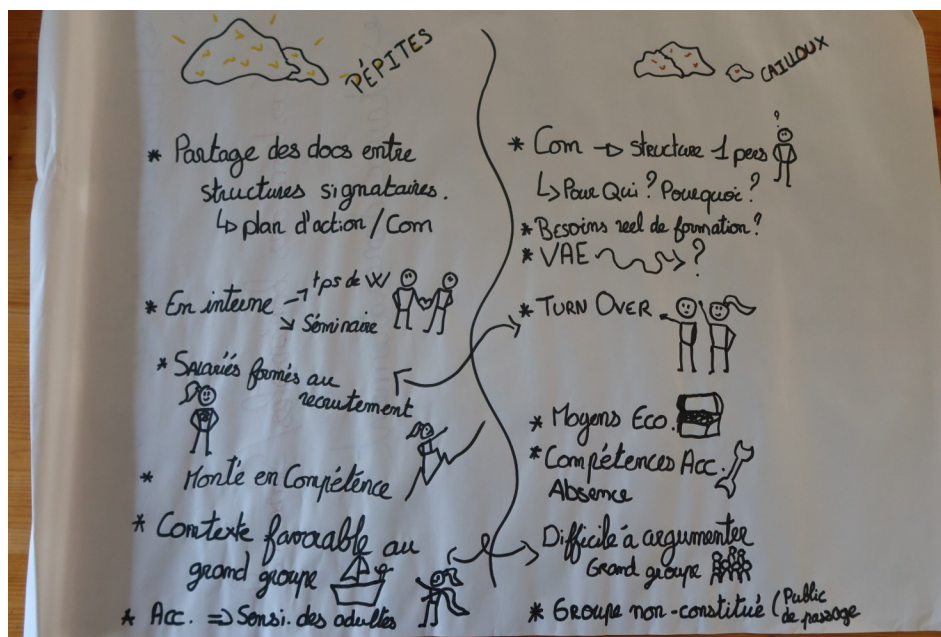 PÉPITES
* Partage des docs entre
structures signataires.
↳ plan d'action / Com
* En interne → tps de W
↘ Séminaire
* Salariés formés au
recrutement
* Monté en Compétence
* Contexte favorable au
grand groupe
* Acc. ⇒ Sensi. des adultes
CAILLOUX
* Com → structure 1 pers
?
↳ Pour Qui ? Pourquoi ?
* Besoins reel de formation ?
* VAE ?
* TURN OVER
* Moyens Eco.
* Compétences Acc.
Absence
Difficile à argumenter
Grand groupe
* Groupe non-constitué (Public
de passage